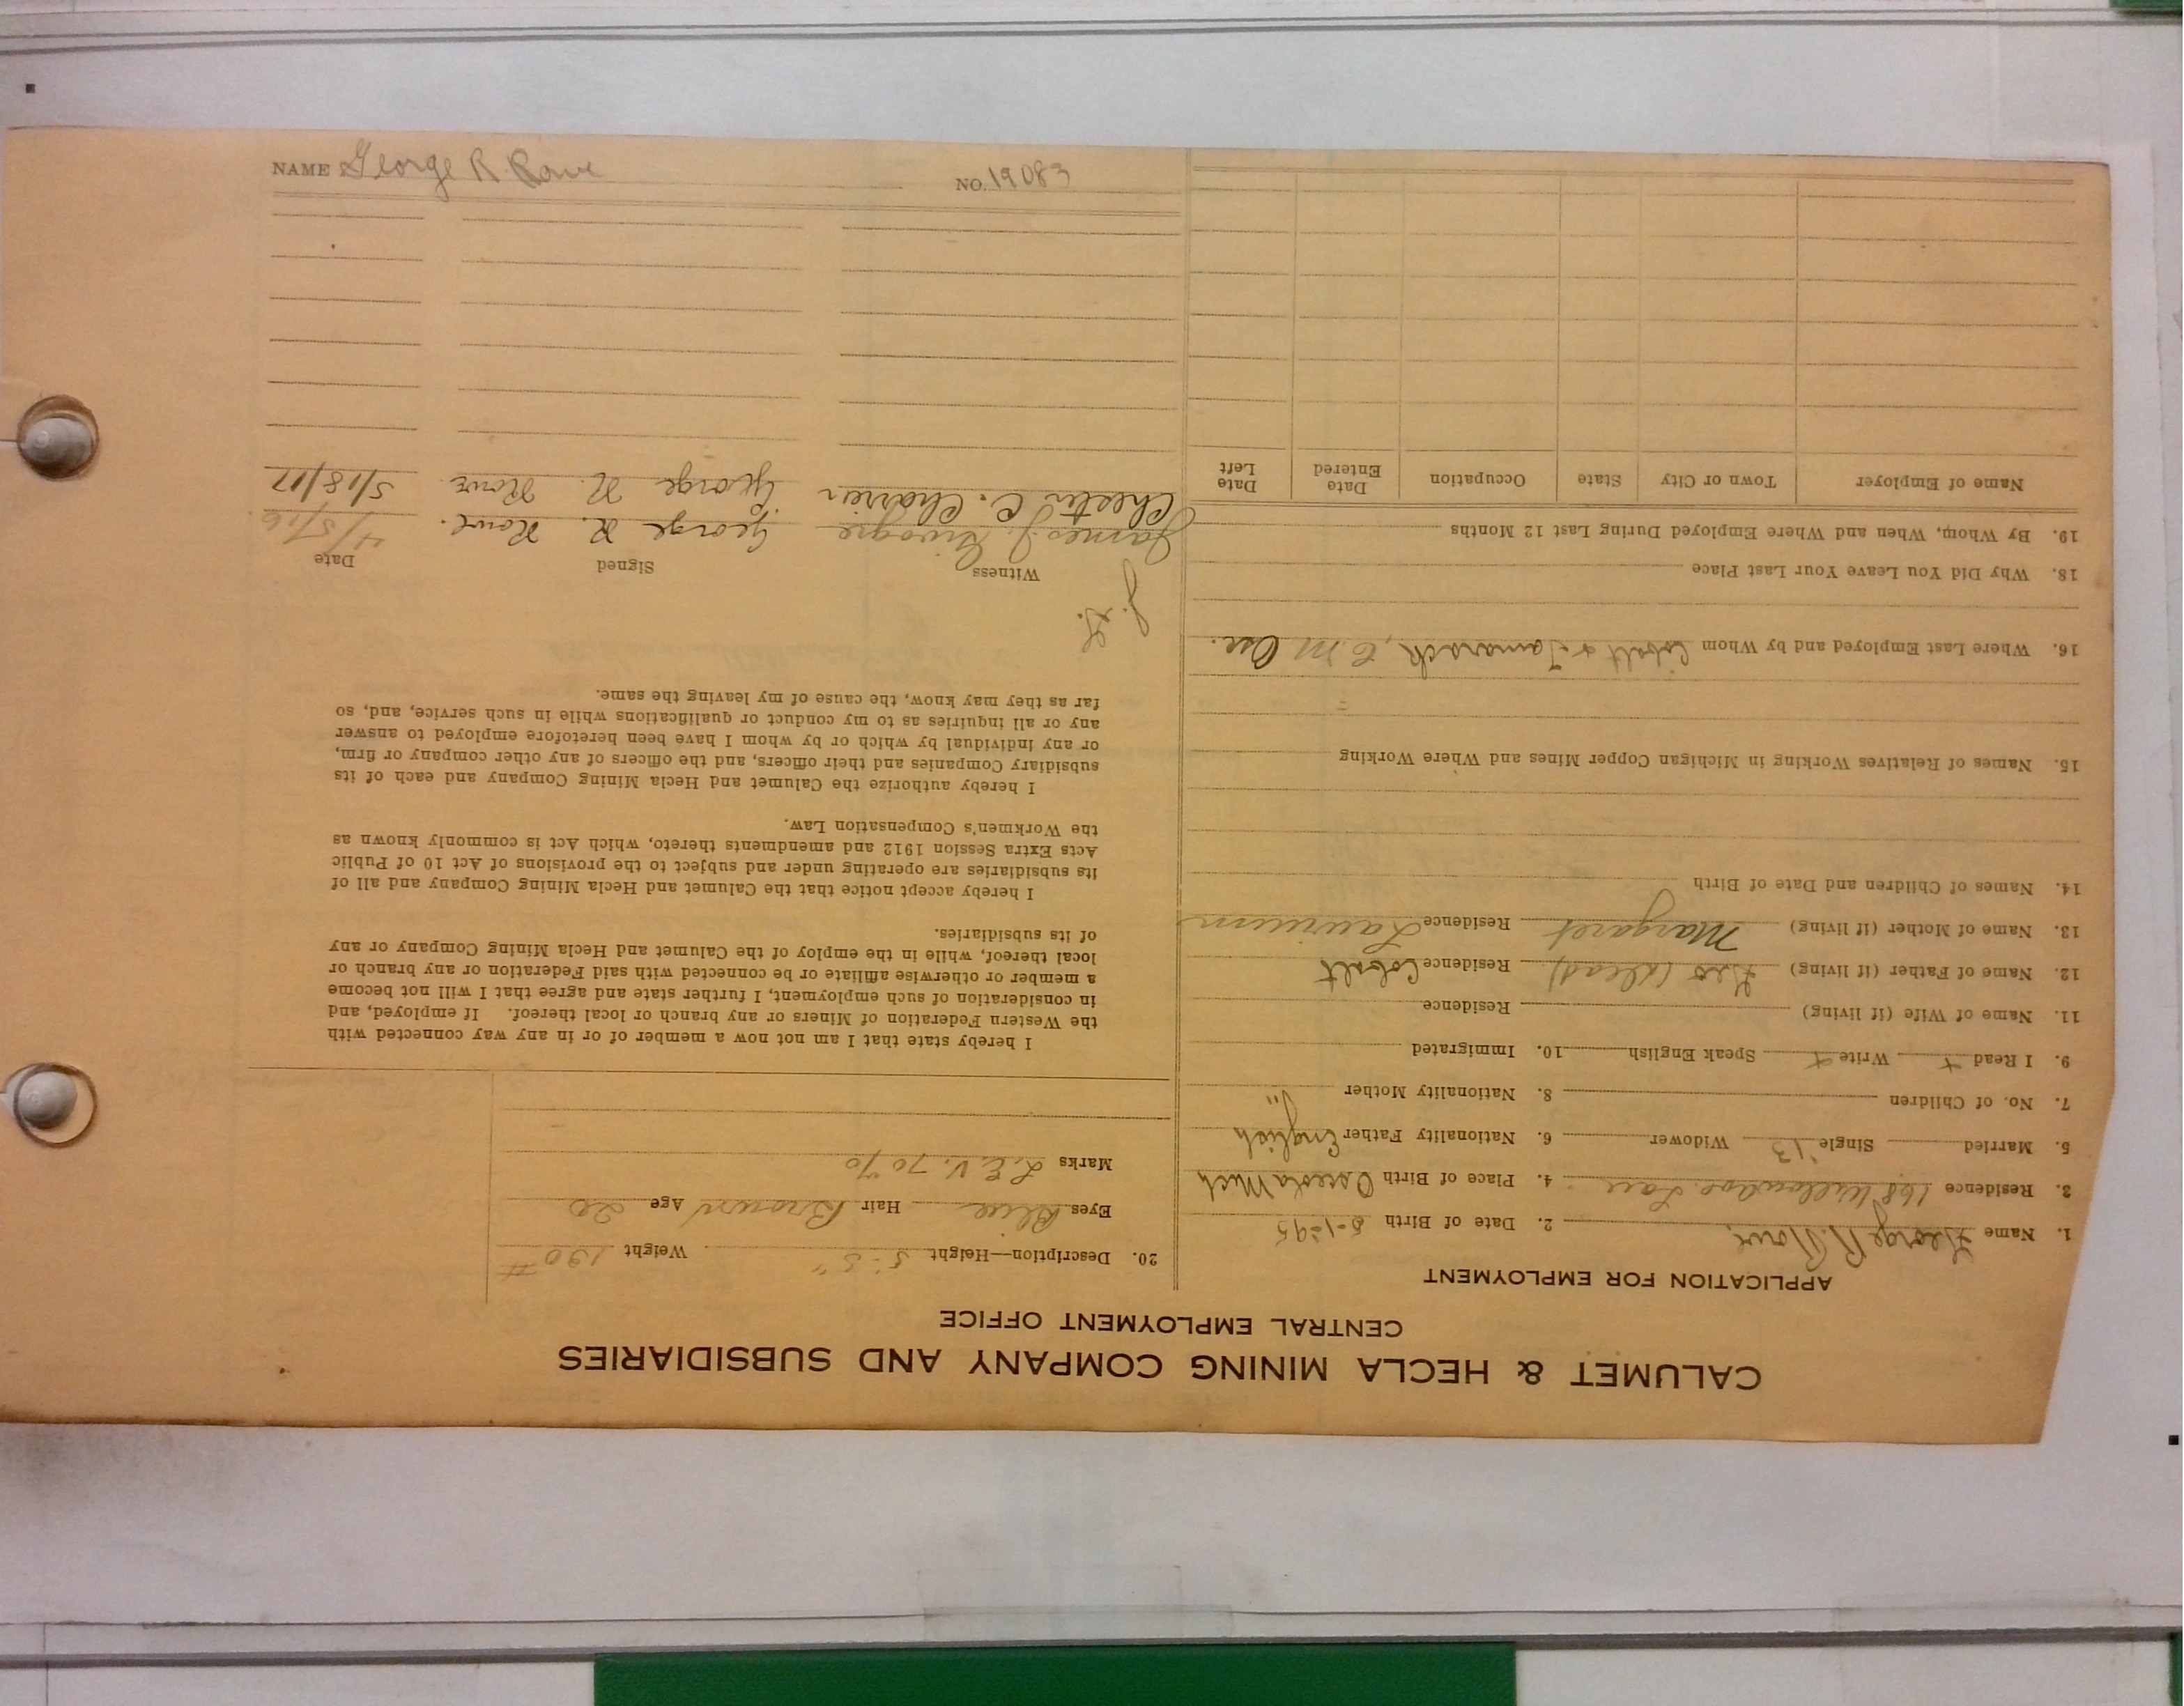 CALUMET & HECLA MINING COMPANY AND SUBSIDIARIES
CENTRAL EMPLOYMENT OFFICE
APPLICATION FOR EMPLOYMENT
1. Name George R. Rowe 2. Date of Birth 5-1-95
3. Residence 168 Willow Ave. Lau 4. Place of Birth Osceola Mich
5. Married Single Widower 6. Nationality Father English
7. No. of Children 8. Nationality Mother "
9. I Read + Write + Speak English 10. Immigrated
11. Name of Wife (if living) Residence
12. Name of Father (if living) Geo (dead) Residence Cobalt
13. Name of Mother (if living) Margaret Residence Laurium
14. Names of Children and Date of Birth
15. Names of Relatives Working in Michigan Copper Mines and Where Working
16. Where Last Employed and by Whom Cobalt & Tamarack, C. M
18. Why Did You Leave Your Last Place
19. By Whom, When and Where Employed During Last 12 Months
Name of Employer Town or City State Occupation Date Entered Date Left
20. Description—Height 5'-5" Weight 130 #
Eyes Blue Hair Brown Age 20
Marks L.E.V. 70%
I hereby state that I am not now a member of or in any way connected with
the Western Federation of Miners or any branch or local thereof. If employed, and
in consideration of such employment, I further state and agree that I will not become
a member or otherwise affiliate or be connected with said Federation or any branch or
local thereof, while in the employ of the Calumet and Hecla Mining Company or any
of its subsidiaries.
I hereby accept notice that the Calumet and Hecla Mining Company and all of
its subsidiaries are operating under and subject to the provisions of Act 10 of Public
Acts Extra Session 1912 and amendments thereto, which Act is commonly known as
the Workmen's Compensation Law.
I hereby authorize the Calumet and Hecla Mining Company and each of its
subsidiary Companies and their officers, and the officers of any other company or firm,
or any individual by which or by whom I have been heretofore employed to answer
any or all inquiries as to my conduct or qualifications while in such service, and, so
far as they may know, the cause of my leaving the same.
J. G.
Witness Signed Date
James J. George R. Rowe. 4/5/16.
Chester C. Charrier George R. Rowe. 5/18/17
NAME George R Rowe NO. 19083